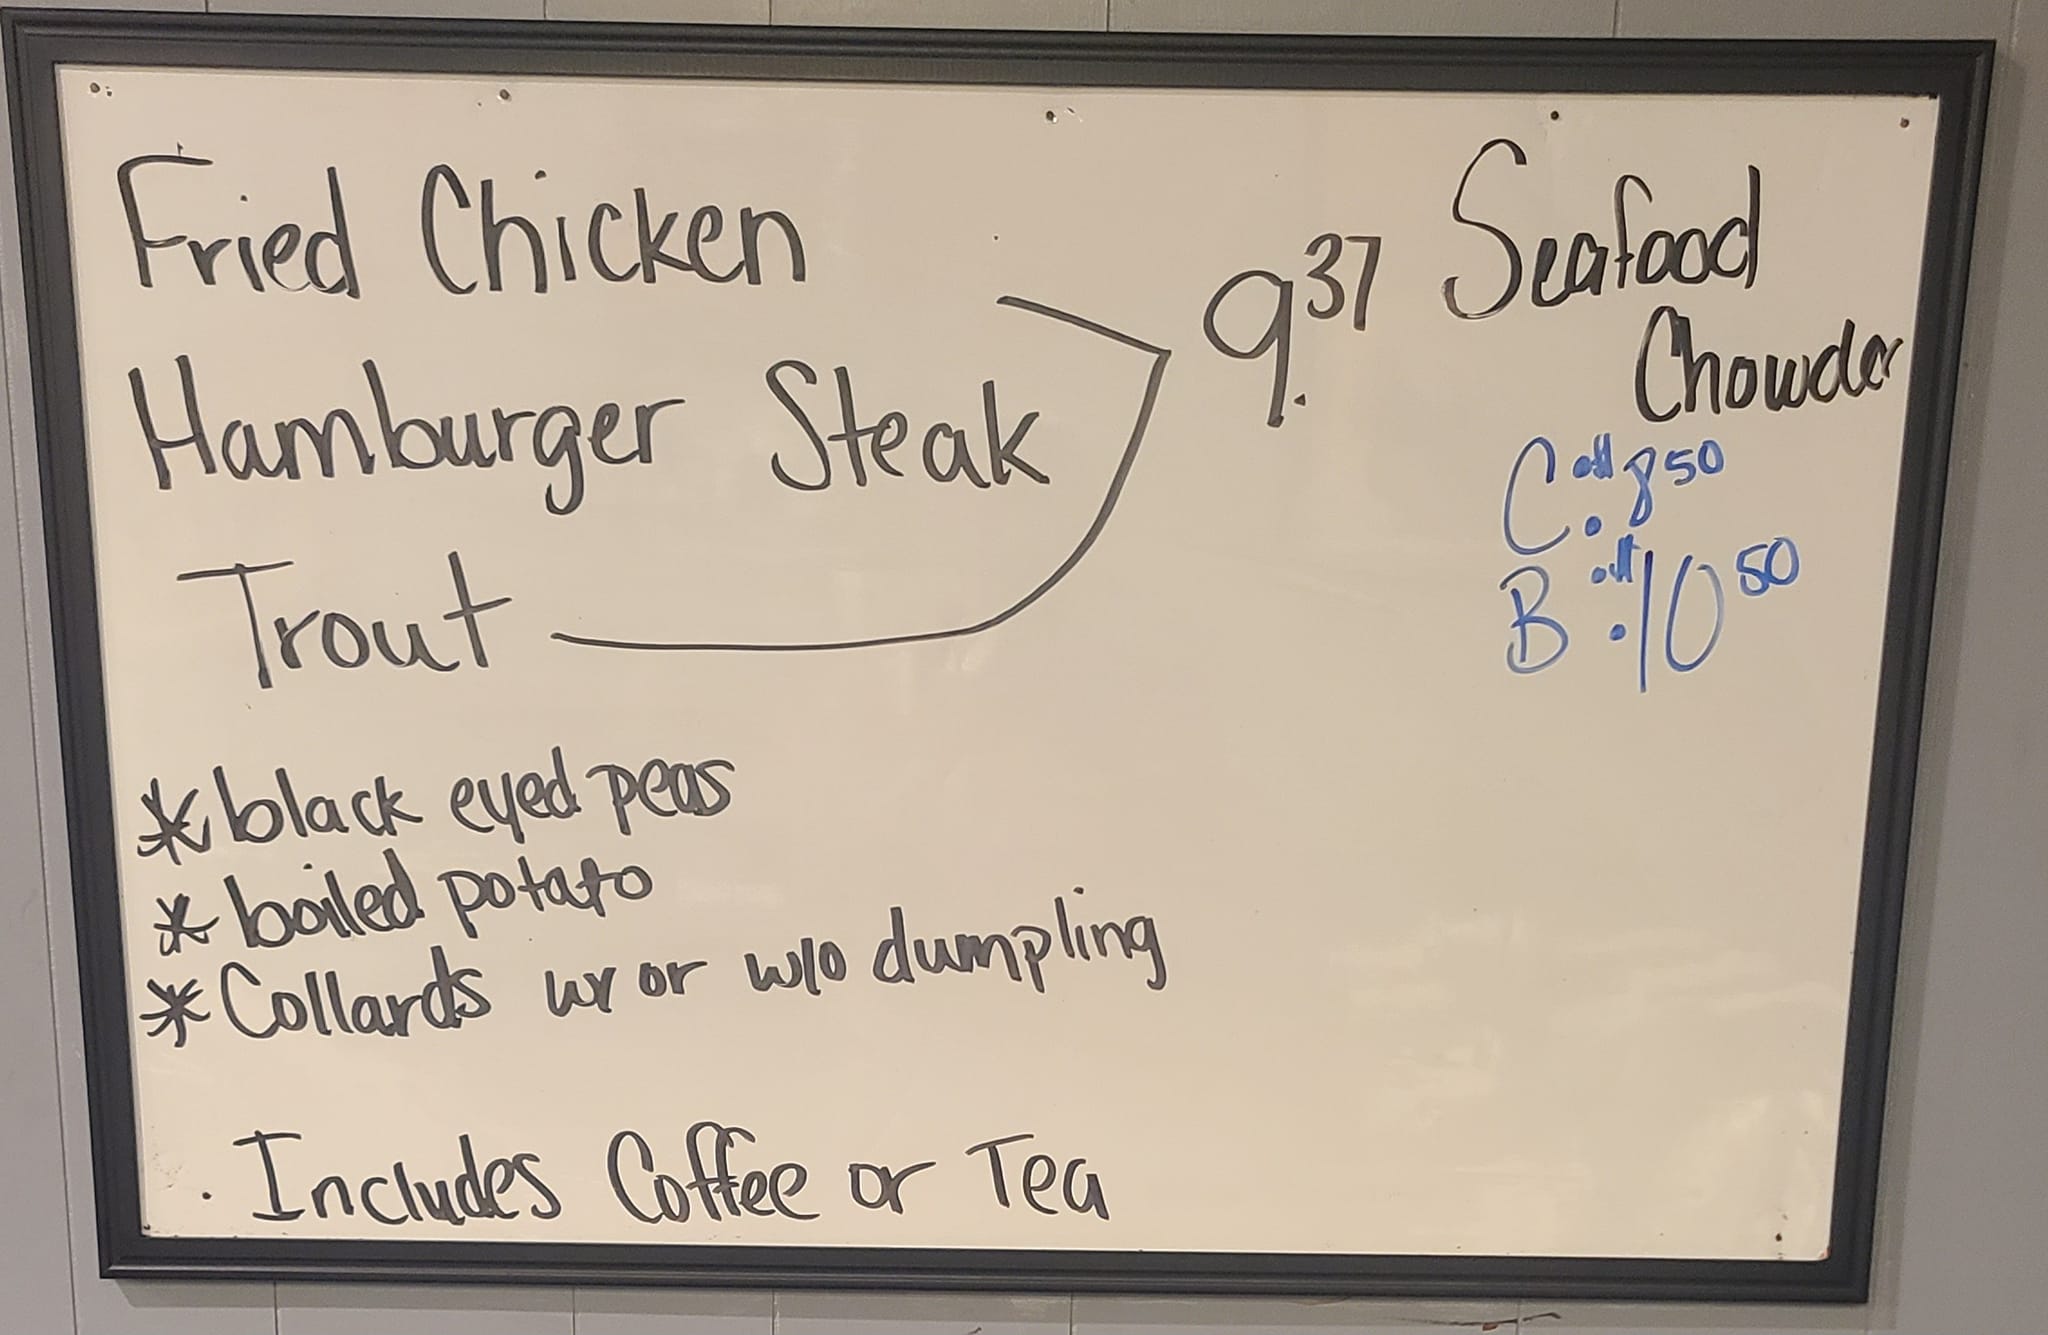 Fried Chicken
Hamburger Steak
Trout
9.37
* black eyed peas
* boiled potato
* Collards w or w/o dumpling
. Includes Coffee or Tea
Seafood
Chowder
C. 8 50
B . 10 50